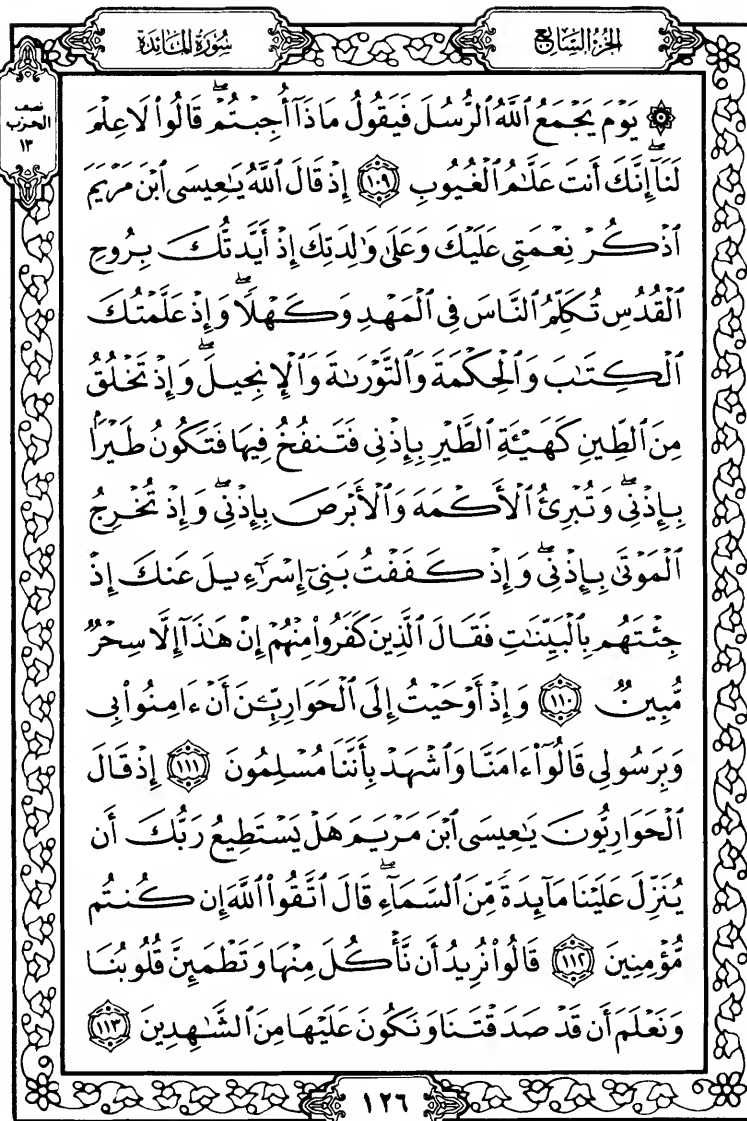 الجزء السابع
سورة المائدة
نصف
الحزب
١٣
۞ يَوْمَ يَجْمَعُ ٱللَّهُ ٱلرُّسُلَ فَيَقُولُ مَاذَآ أُجِبْتُمْۖ قَالُوا۟ لَا عِلْمَ
لَنَآۖ إِنَّكَ أَنتَ عَلَّٰمُ ٱلْغُيُوبِ ١٠٩ إِذْ قَالَ ٱللَّهُ يَٰعِيسَى ٱبْنَ مَرْيَمَ
ٱذْكُرْ نِعْمَتِى عَلَيْكَ وَعَلَىٰ وَٰلِدَتِكَ إِذْ أَيَّدتُّكَ بِرُوحِ
ٱلْقُدُسِ تُكَلِّمُ ٱلنَّاسَ فِى ٱلْمَهْدِ وَكَهْلًاۖ وَإِذْ عَلَّمْتُكَ
ٱلْكِتَٰبَ وَٱلْحِكْمَةَ وَٱلتَّوْرَىٰةَ وَٱلْإِنجِيلَۖ وَإِذْ تَخْلُقُ
مِنَ ٱلطِّينِ كَهَيْـَٔةِ ٱلطَّيْرِ بِإِذْنِى فَتَنفُخُ فِيهَا فَتَكُونُ طَيْرًۢا
بِإِذْنِىۖ وَتُبْرِئُ ٱلْأَكْمَهَ وَٱلْأَبْرَصَ بِإِذْنِىۖ وَإِذْ تُخْرِجُ
ٱلْمَوْتَىٰ بِإِذْنِىۖ وَإِذْ كَفَفْتُ بَنِىٓ إِسْرَٰٓءِيلَ عَنكَ إِذْ
جِئْتَهُم بِٱلْبَيِّنَٰتِ فَقَالَ ٱلَّذِينَ كَفَرُوا۟ مِنْهُمْ إِنْ هَٰذَآ إِلَّا سِحْرٌ
مُّبِينٌ ١١٠ وَإِذْ أَوْحَيْتُ إِلَى ٱلْحَوَارِيِّـۧنَ أَنْ ءَامِنُوا۟ بِى
وَبِرَسُولِى قَالُوٓا۟ ءَامَنَّا وَٱشْهَدْ بِأَنَّنَا مُسْلِمُونَ ١١١ إِذْ قَالَ
ٱلْحَوَارِيُّونَ يَٰعِيسَى ٱبْنَ مَرْيَمَ هَلْ يَسْتَطِيعُ رَبُّكَ أَن
يُنَزِّلَ عَلَيْنَا مَآئِدَةً مِّنَ ٱلسَّمَآءِۖ قَالَ ٱتَّقُوا۟ ٱللَّهَ إِن كُنتُم
مُّؤْمِنِينَ ١١٢ قَالُوا۟ نُرِيدُ أَن نَّأْكُلَ مِنْهَا وَتَطْمَئِنَّ قُلُوبُنَا
وَنَعْلَمَ أَن قَدْ صَدَقْتَنَا وَنَكُونَ عَلَيْهَا مِنَ ٱلشَّٰهِدِينَ ١١٣
١٢٦